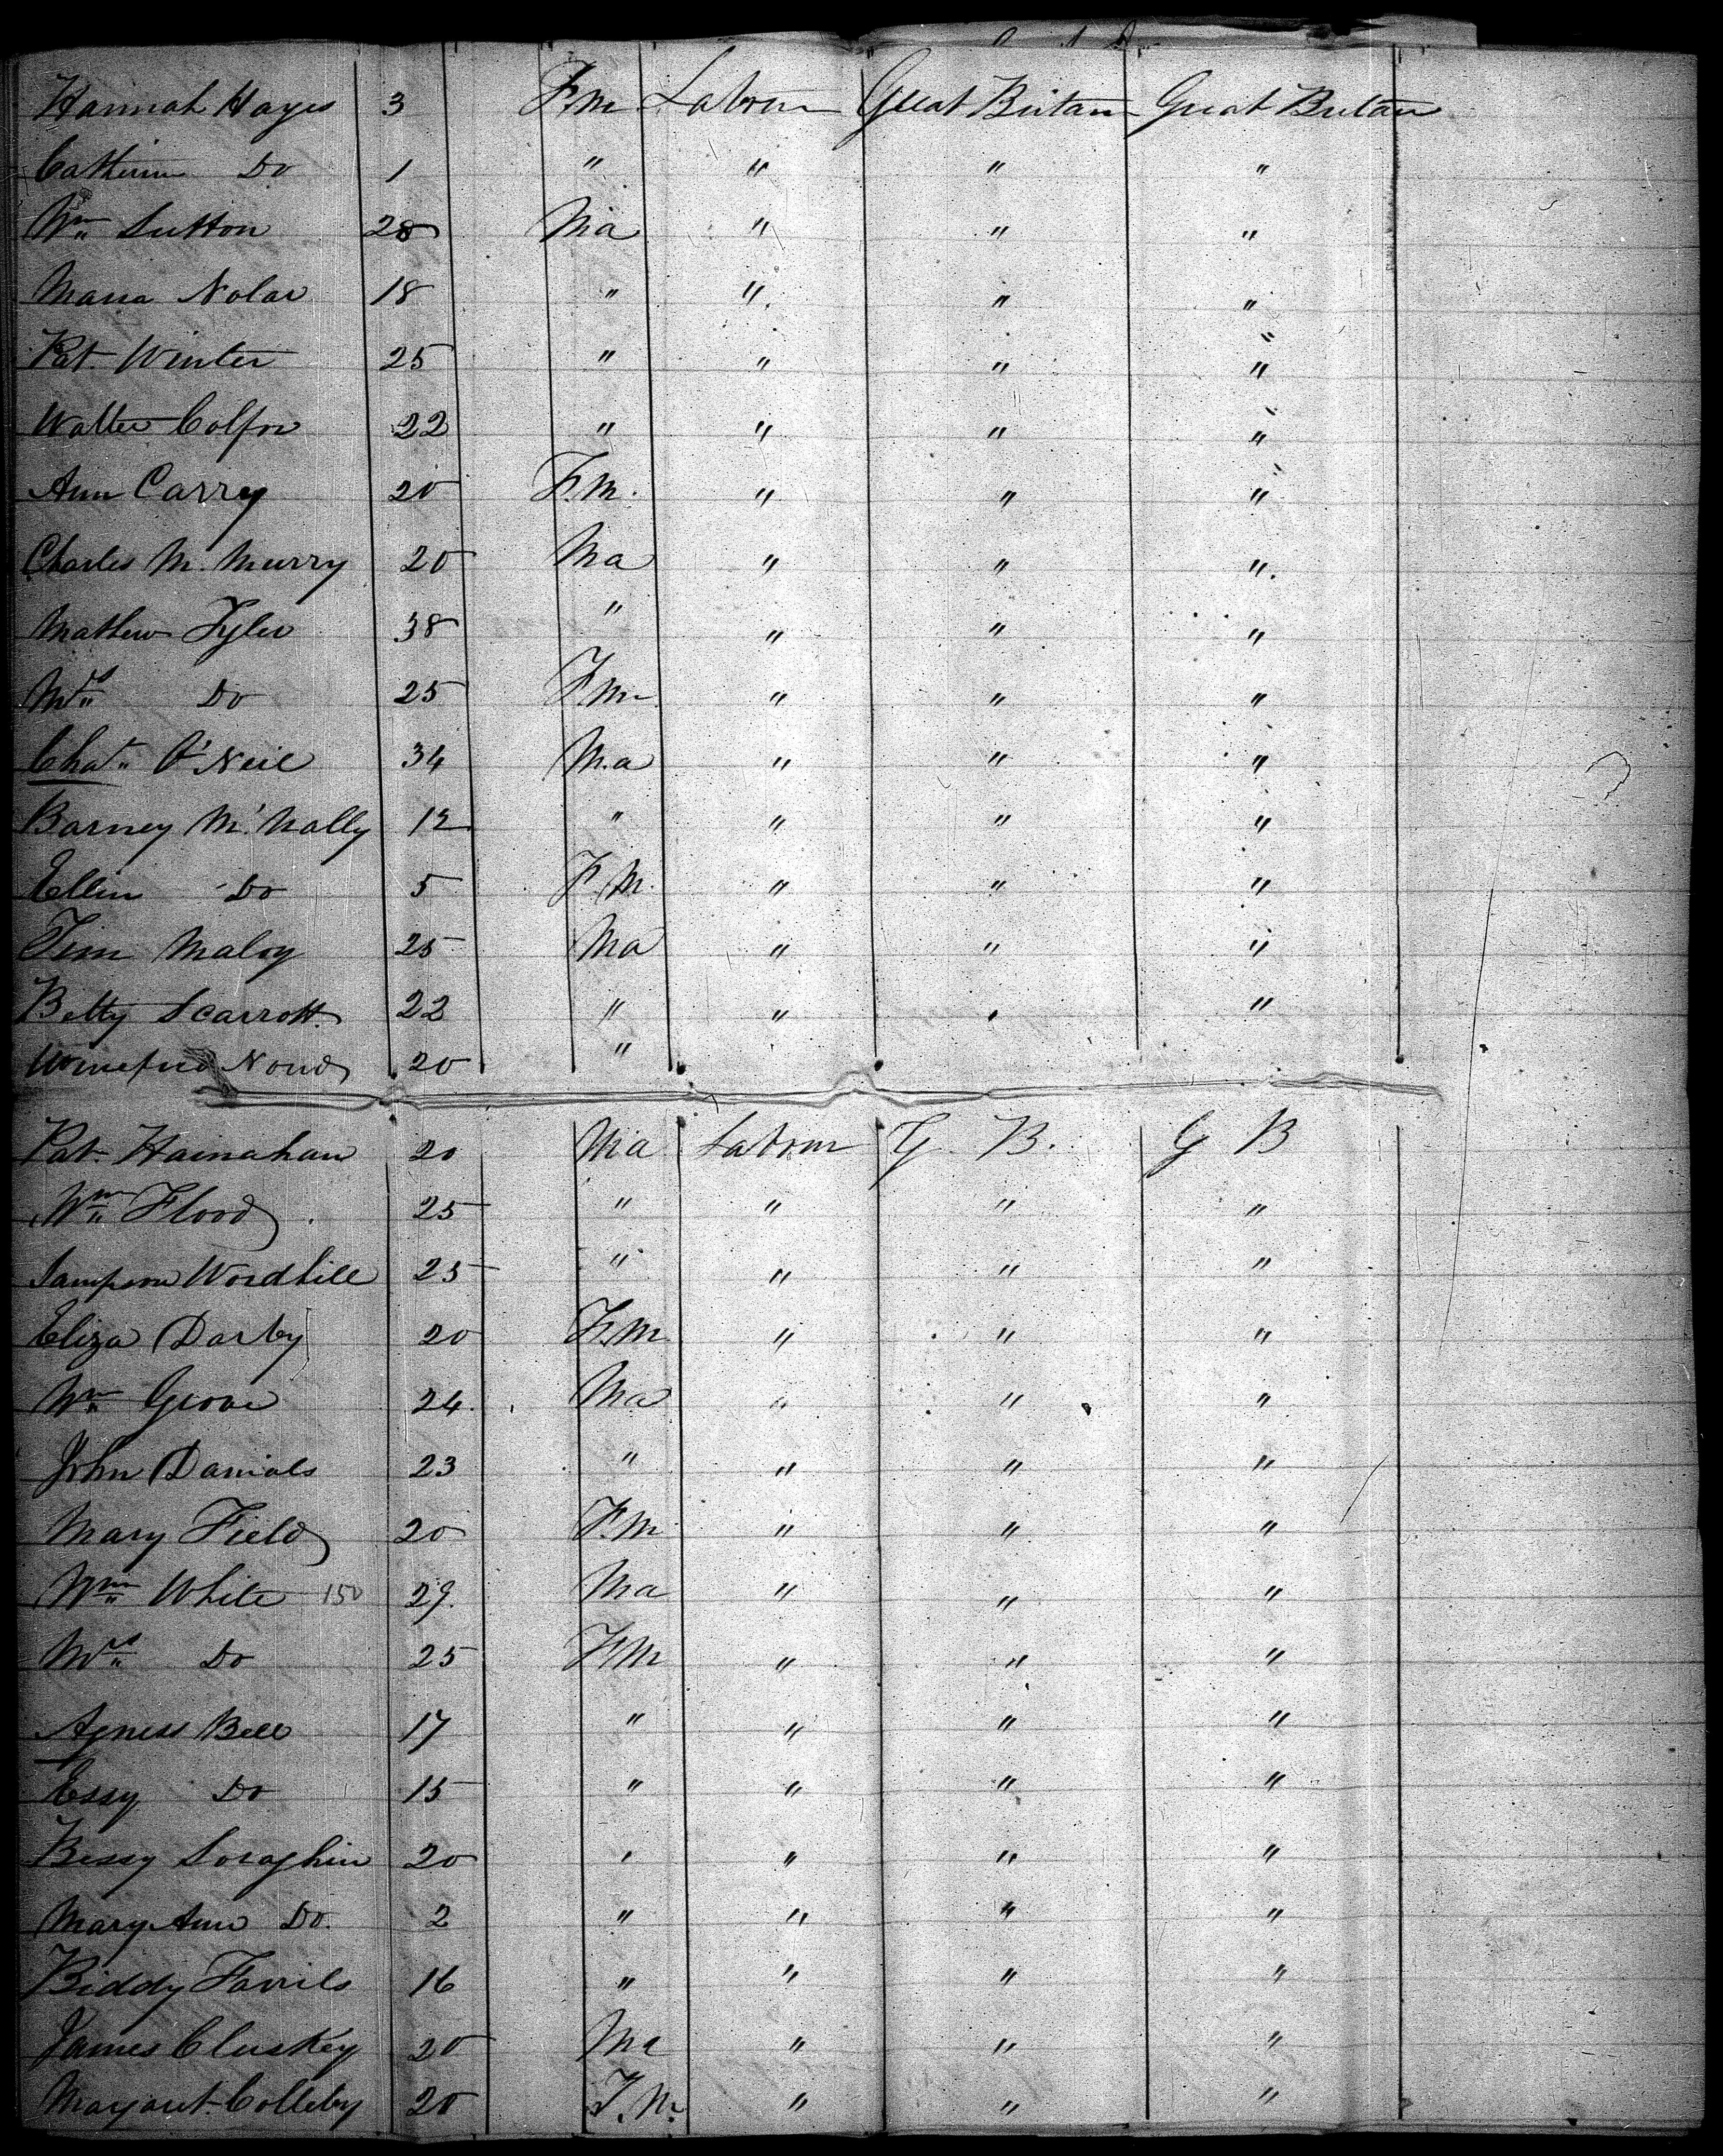 Hannah Hayes 3 Fm Labour Great Britain Great Britain
Catherine Do 1 " " " "
Wm Sutton 28 Ma " " "
Maria Nolan 18 " " " "
Pat. Winter 25 " " " "
Walter Colfer 22 " " " "
Ann Carrey 20 F.m. " " "
Charles M. Murry 20 Ma " " "
Mathew Tyler 38 " " " "
Mrs Do 25 F.m " " "
Chas O'Neil 34 M.a " " "
Barney M'Nally 12 " " " "
Ellen Do 5 F.M. " " "
Tim Maloy 25 Ma " " "
Betty Scarrott 22 " " " "
Winefred 20 "
Pat. Hainahan 20 Ma Labour G B. G B
Wm Flood 25 " " " "
Sampson Wordhill 25 " " " "
Eliza Darby 20 F.m " " "
Wm Grove 24 Ma " " "
John Daniels 23 " " " "
Mary Field 20 F.m " " "
Wm White 150 29. Ma " " "
Mrs Do 25 F.M " " "
Agness Bell 17 " " " "
Essy Do 15 " " " "
Bessy Soraghin 20 " " " "
Mary Ann Do. 2 " " " "
Biddy Farrils 16 " " " "
James Cluskey 20 Ma " " "
Margaret Colleby 20 F.M. " " "